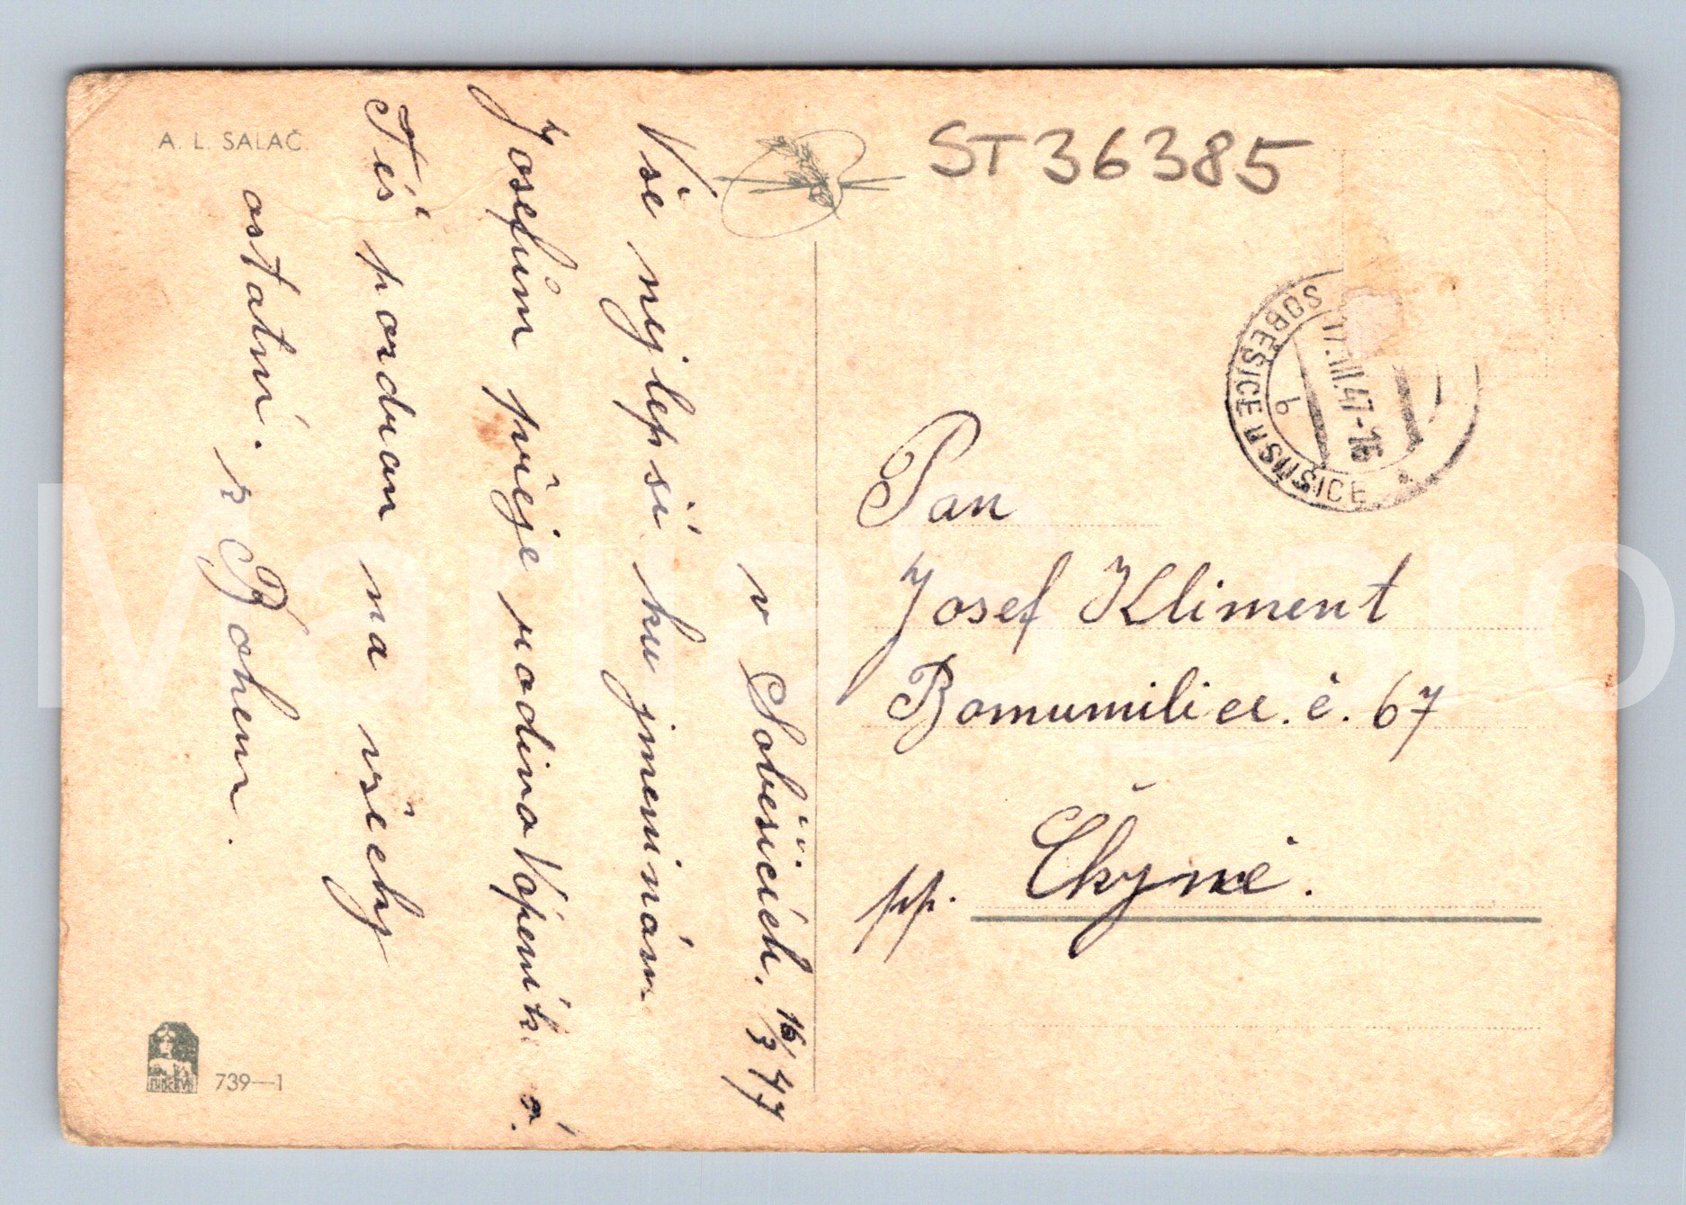 A. L. SALAČ
ST36385
SOBĚŠICE n SUŠICE
17.III.47-16
b
v Soběšicích. 16/3 47
Vše nejlepší ku jmeninám
Josefům přeje rodina Vopeník
Též pozdrav na všechy
ostatní. z Bohem.
Pan
Josef Kliment
Bomumilice. č. 67
pp. Čkyně.
739—1